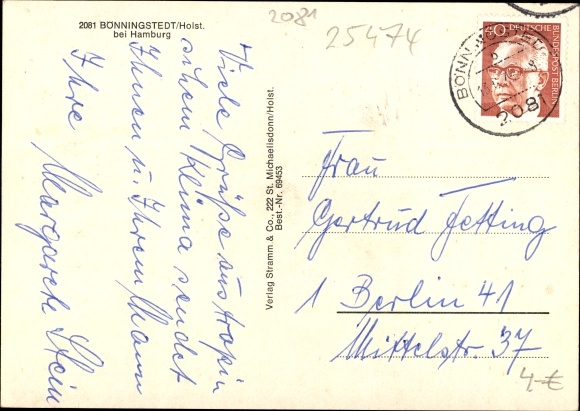 2081 BÖNNINGSTEDT/Holst.
bei Hamburg
2081
25474
Viele Grüße aus tropi
schem Klima sendet
Ihnen u. Ihrem Mann
Ihre Margarete Stein
Verlag Stramm & Co., 222 St. Michaelisdonn/Holst.
Best.-Nr. 69453
30
DEUTSCHE BUNDESPOST BERLIN
2081
Frau
Gertrud Fetting
1 Berlin 41
Mittelstr. 37
4,-€